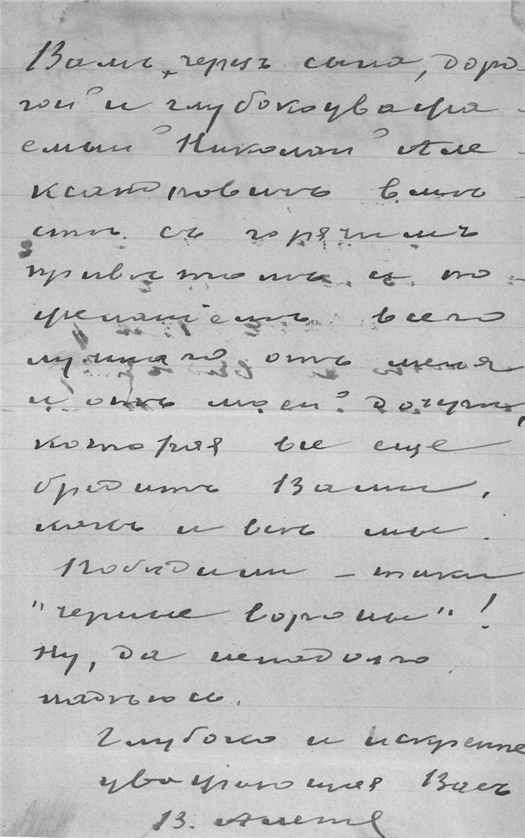 Вамъ, черезъ сына, доро
гой и глубокоуважа
емый Николай Але
ксандровичъ вмѣ
стѣ съ горячимъ
привѣтомъ и по
желаніемъ всего
лучшаго отъ меня
и отъ моей дочурки,
которая все еще
бредитъ Вами,
какъ и всѣ мы.
Победили - таки
"черные вороны"!
Ну, да ненадолго
надѣюсь.
Глубоко и искренне
уважающая Васъ
В.